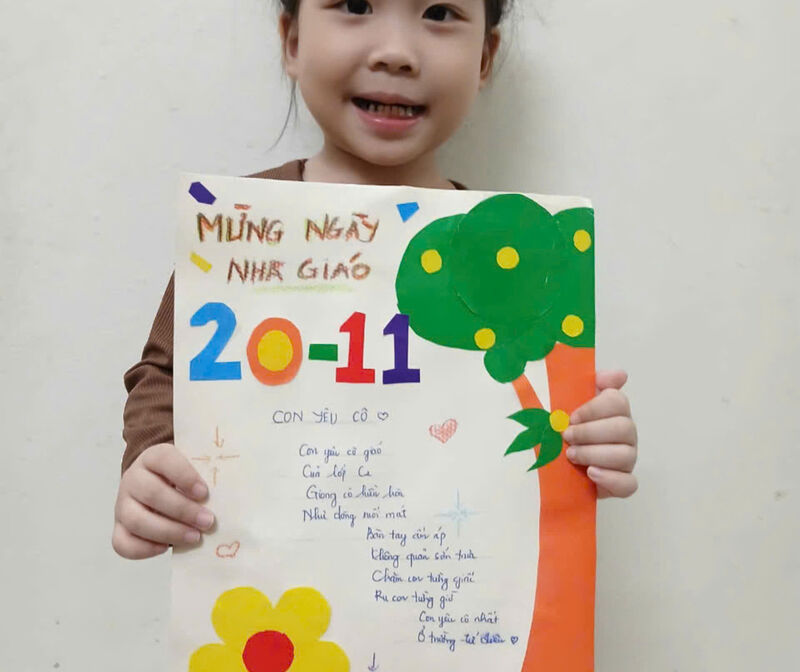 MỪNG NGÀY
NHÀ GIÁO
20-11
CON YÊU CÔ
Con yêu cô giáo
Của lớp
Giọng cô hiền hòa
Như dòng suối mát
Bàn tay ấm áp
Không quản sớm trưa
Chăm con từng giấc
Ru con từng giờ
Con yêu cô nhất
Ở trường